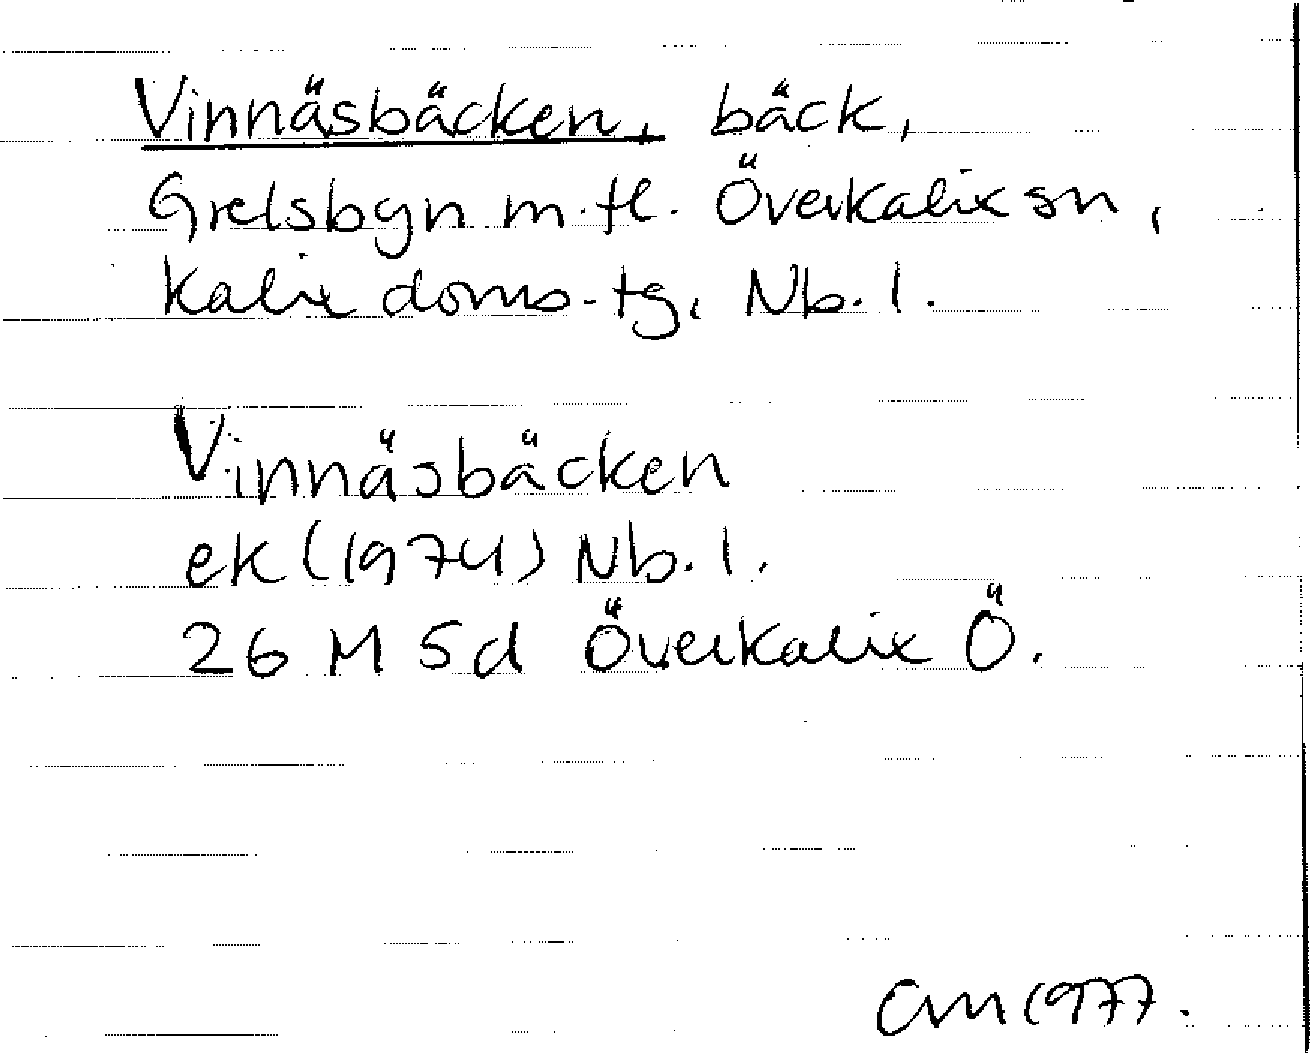 Vinnäsbäcken, bäck,
Grelsbyn m.fl. Överkalix sn,
Kalix doms.tg, Nb. l.
Vinnäsbäcken
ek (1974) Nb. l.
26 M 5d Överkalix Ö.
CM 1977.